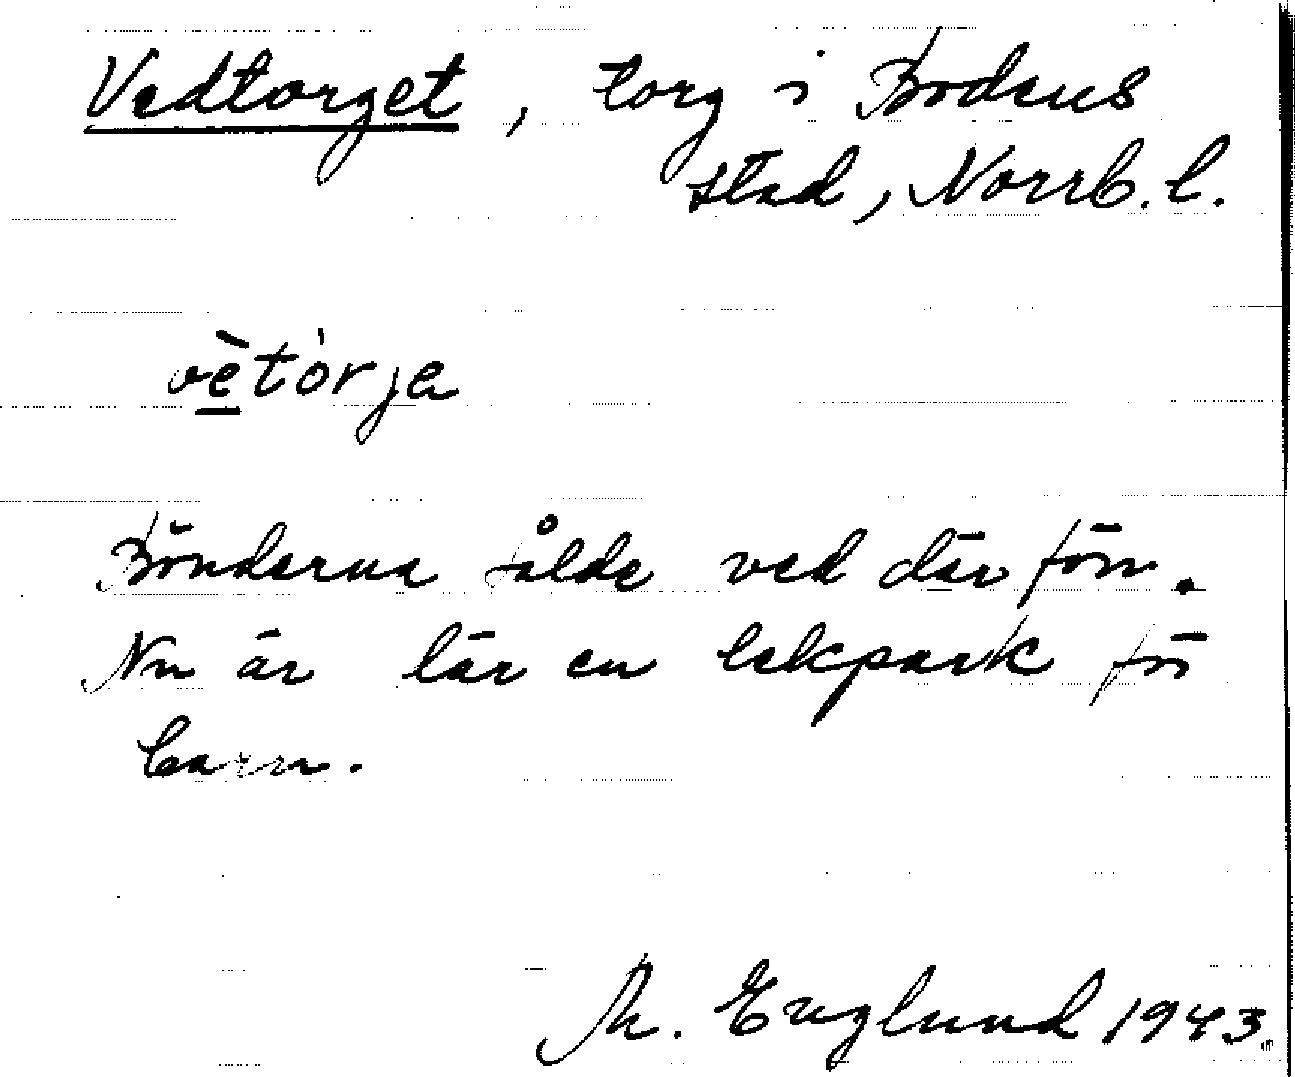 Vedtorget, torg i Bodens
stad, Norrb. l.
vètórja
Bönderna sålde ved där förr.
Nu är där en lekpark för
barn.
M. Englund 1943.